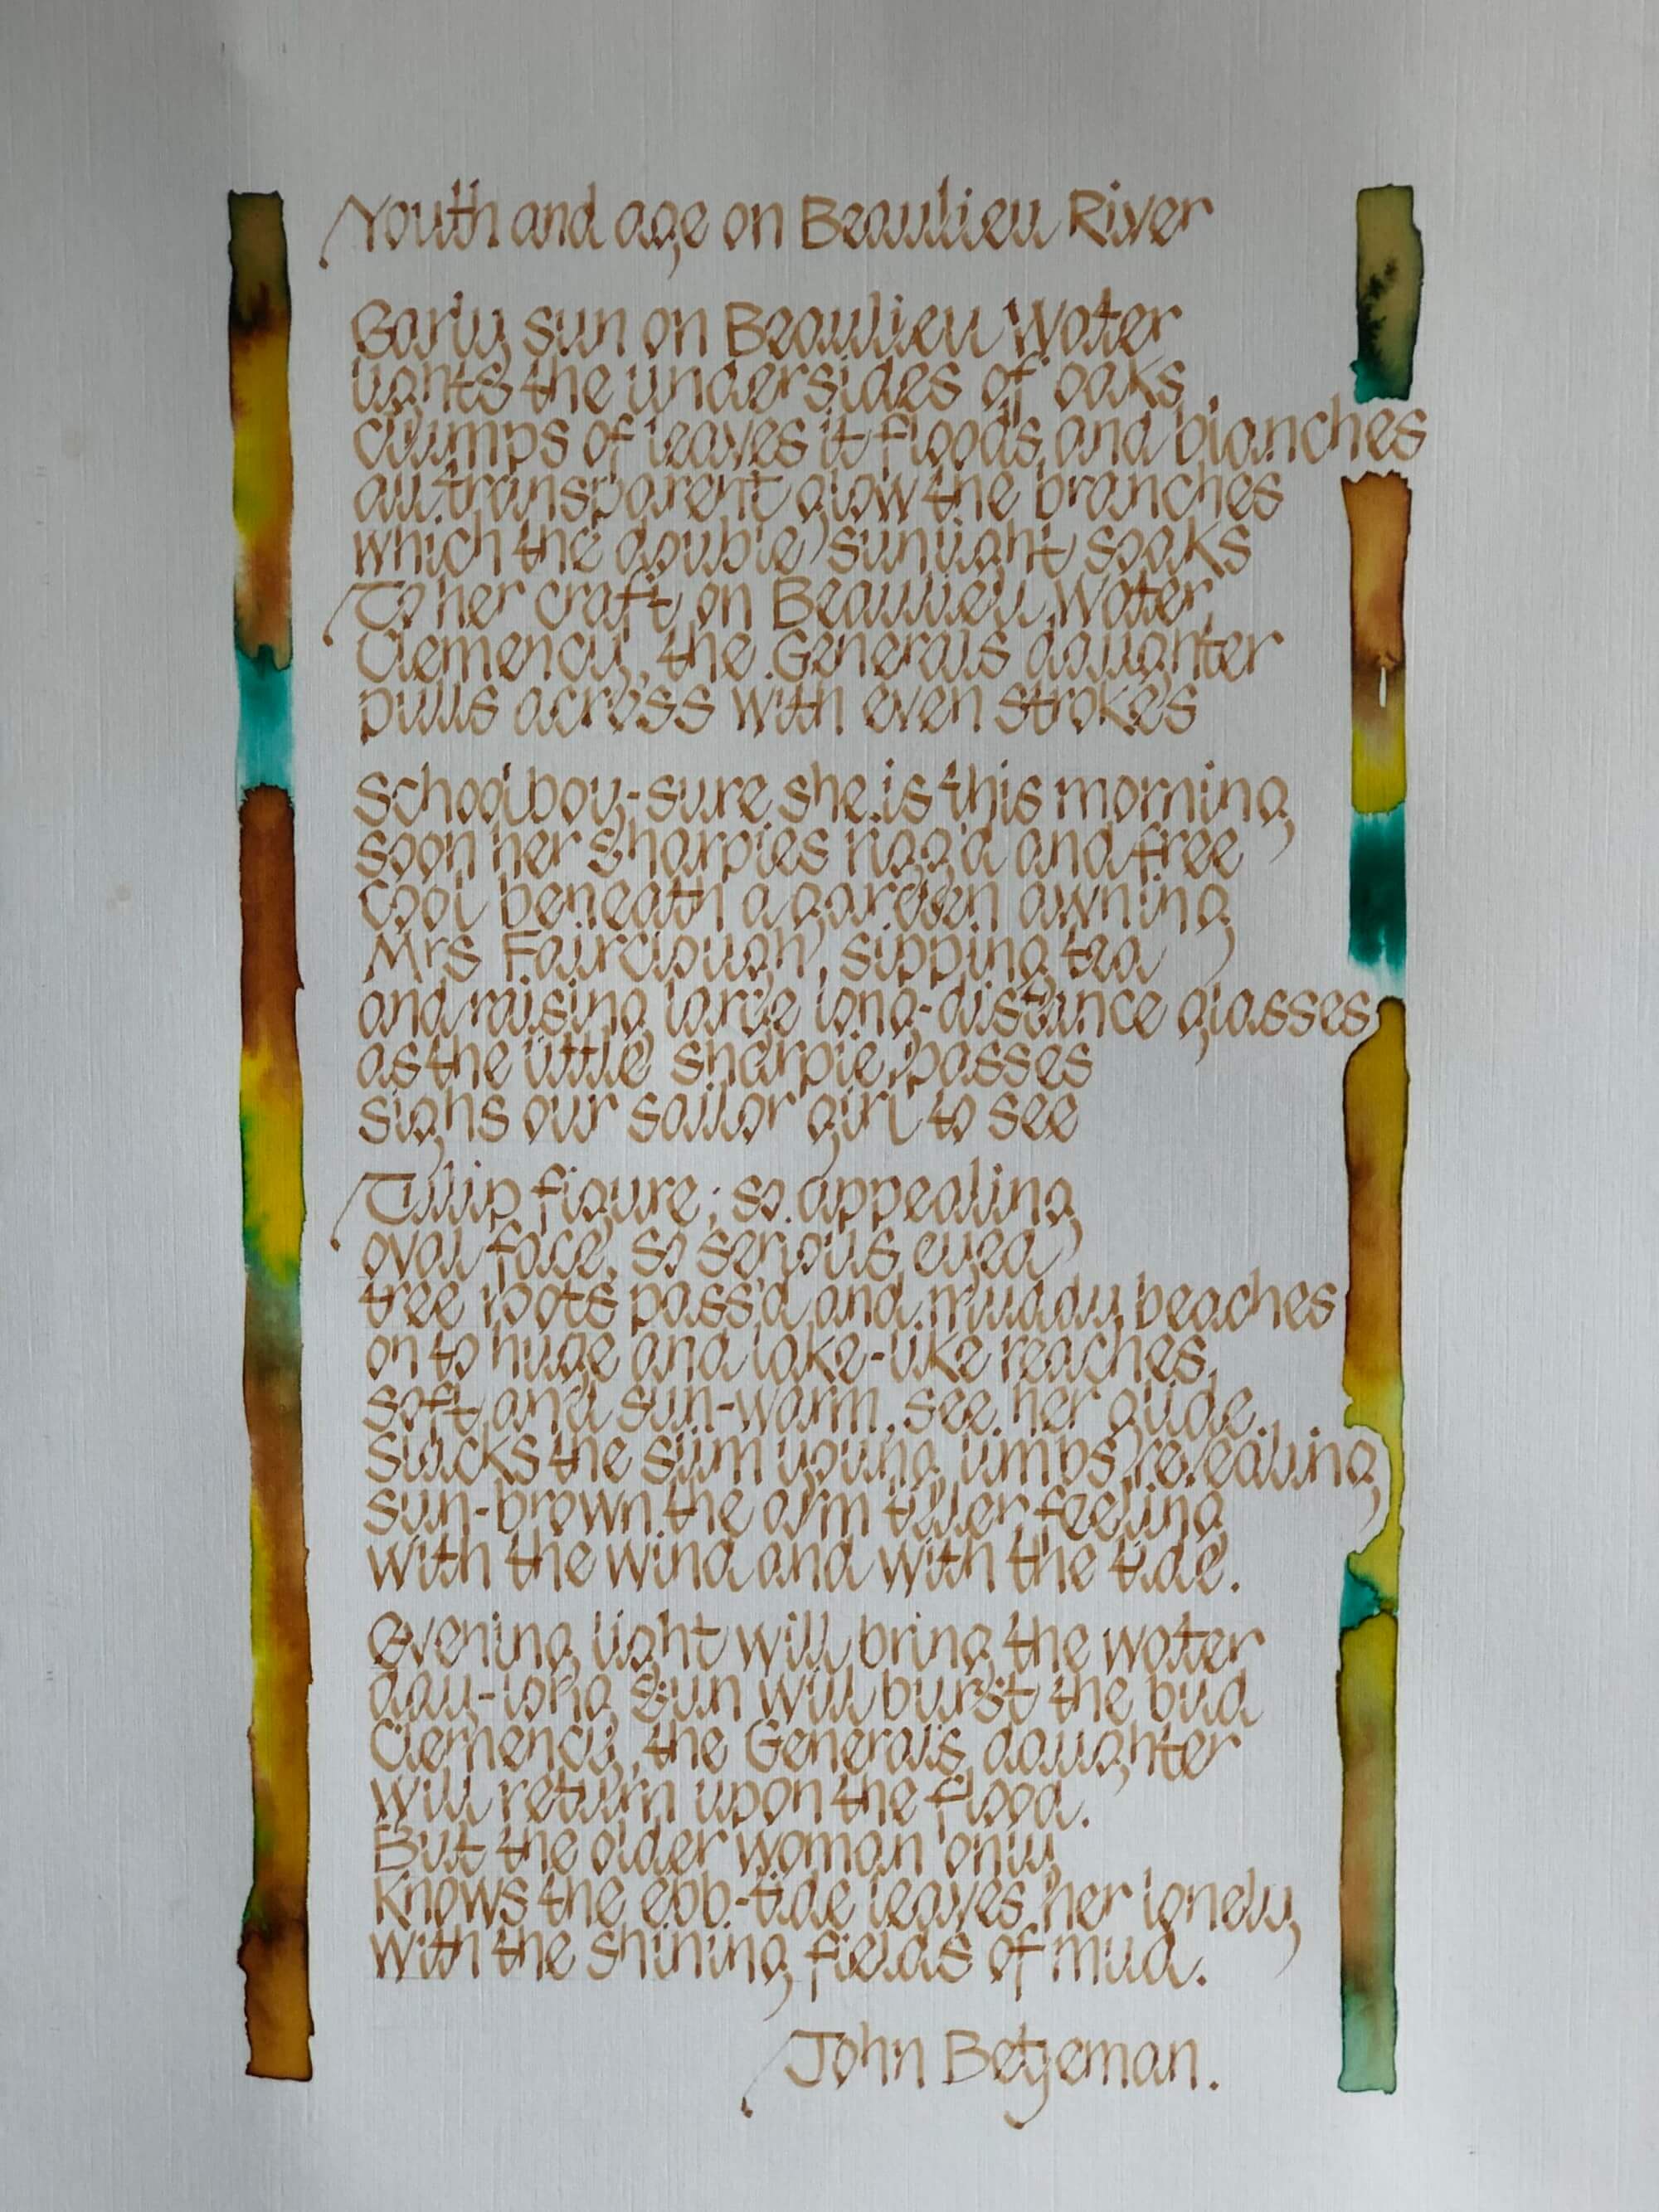 Youth and age on Beaulieu River
Early sun on Beaulieu Water
lights the undersides of oaks
clumps of leaves it floods and blanches
all transparent glow the branches
which the double sunlight soaks
To her craft on Beaulieu Water
Clemency, the Generals daughter
pulls across with even strokes
Schoolboy-sure she is this morning
soon her sharpies rigg'd and free
cool beneath a garden awning
Mrs Fairclough, sipping tea
and raising large long-distance glasses
as the little sharpie passes
sighs our sailor girl to see
Tulip figure, so appealing
oval face, so serious eyed
tree roots pass'd and muddy beaches
on to huge and lake-like reaches,
soft and sun-warm, see her glide
slacks the slim young limbs revealing
sun-brown the arm tiller feeling
with the wind and with the tide.
Evening light will bring the water
day-long sun will burst the bud
Clemency, the General's daughter
will return upon the flood.
But the older woman only
knows the ebb-tide leaves her lonely
with the shining fields of mud.
John Betjeman.